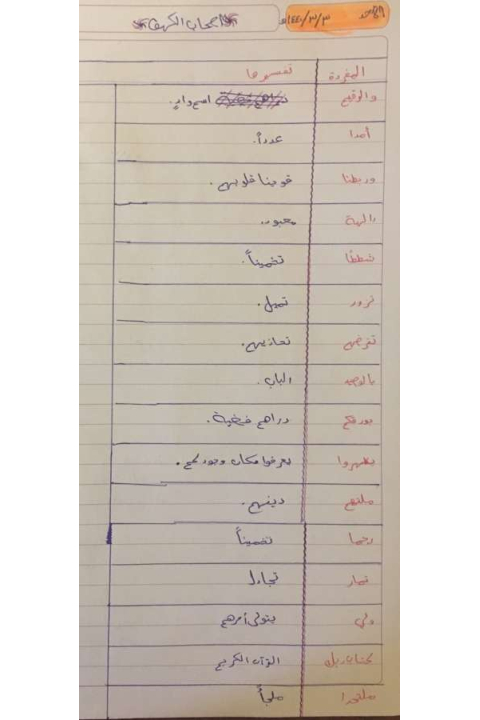 الأحد
١٤٤٠/٣/٣هـ
اصحاب الكهف
المفردة تفسيرها
والرقيم اسم وادٍ.
أمدا عدداً.
وربطنا قوينا قلوبهم.
آلهة معبود.
شططا تخميناً.
تزور تميل.
تقرضهم تحاذيهم.
بالوصيد الباب.
بورقكم دراهم فضية.
يظهروا يعرفوا مكان وجودكم.
ملتهم دينهم.
رجما تخميناً
تمار تجادل
ولي يتولى أمرهم
كتاب ربك القرآن الكريم
ملتحدا ملجأ